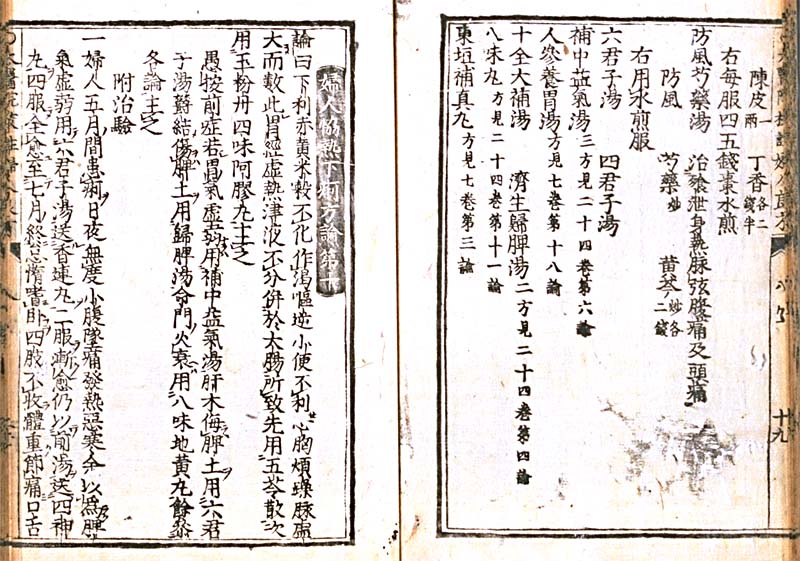 陳皮一兩 丁香各二錢半
右每服四五錢棗水煎
防風芍藥湯 治飧泄身熱脉弦腹痛及頭痛
防風 芍藥炒 黃芩炒各二錢
右用水煎服
六君子湯 四君子湯
補中益氣湯三方見二十四卷第六論
人參養胃湯方見七卷第十八論
十全大補湯 濟生歸脾湯二方見二十四卷第四論
八味丸方見二十四卷第十一論
東垣補真丸方見七卷第三論
十九
婦人協熱下痢方論第十
論曰下利赤黃米穀不化作渴嘔逆小便不利心胸煩躁脉虛
大而數此胃經虛熱津液不分併於大腸所致先用五苓散次
用玉粉丹四味阿膠丸主之
愚按前症若胃氣虛弱用補中益氣湯肝木侮脾土用六君
子湯鬱結傷脾土用歸脾湯命門火衰用八味地黃丸餘參
各論主之
附治驗
一婦人五月間患痢日夜無度小腹墜痛發熱惡寒余以爲脾
氣虛弱用六君子湯送香連丸二服漸愈仍以前湯送四神
丸四服全愈至七月終怠惰嗜卧四肢不收體重節痛口舌